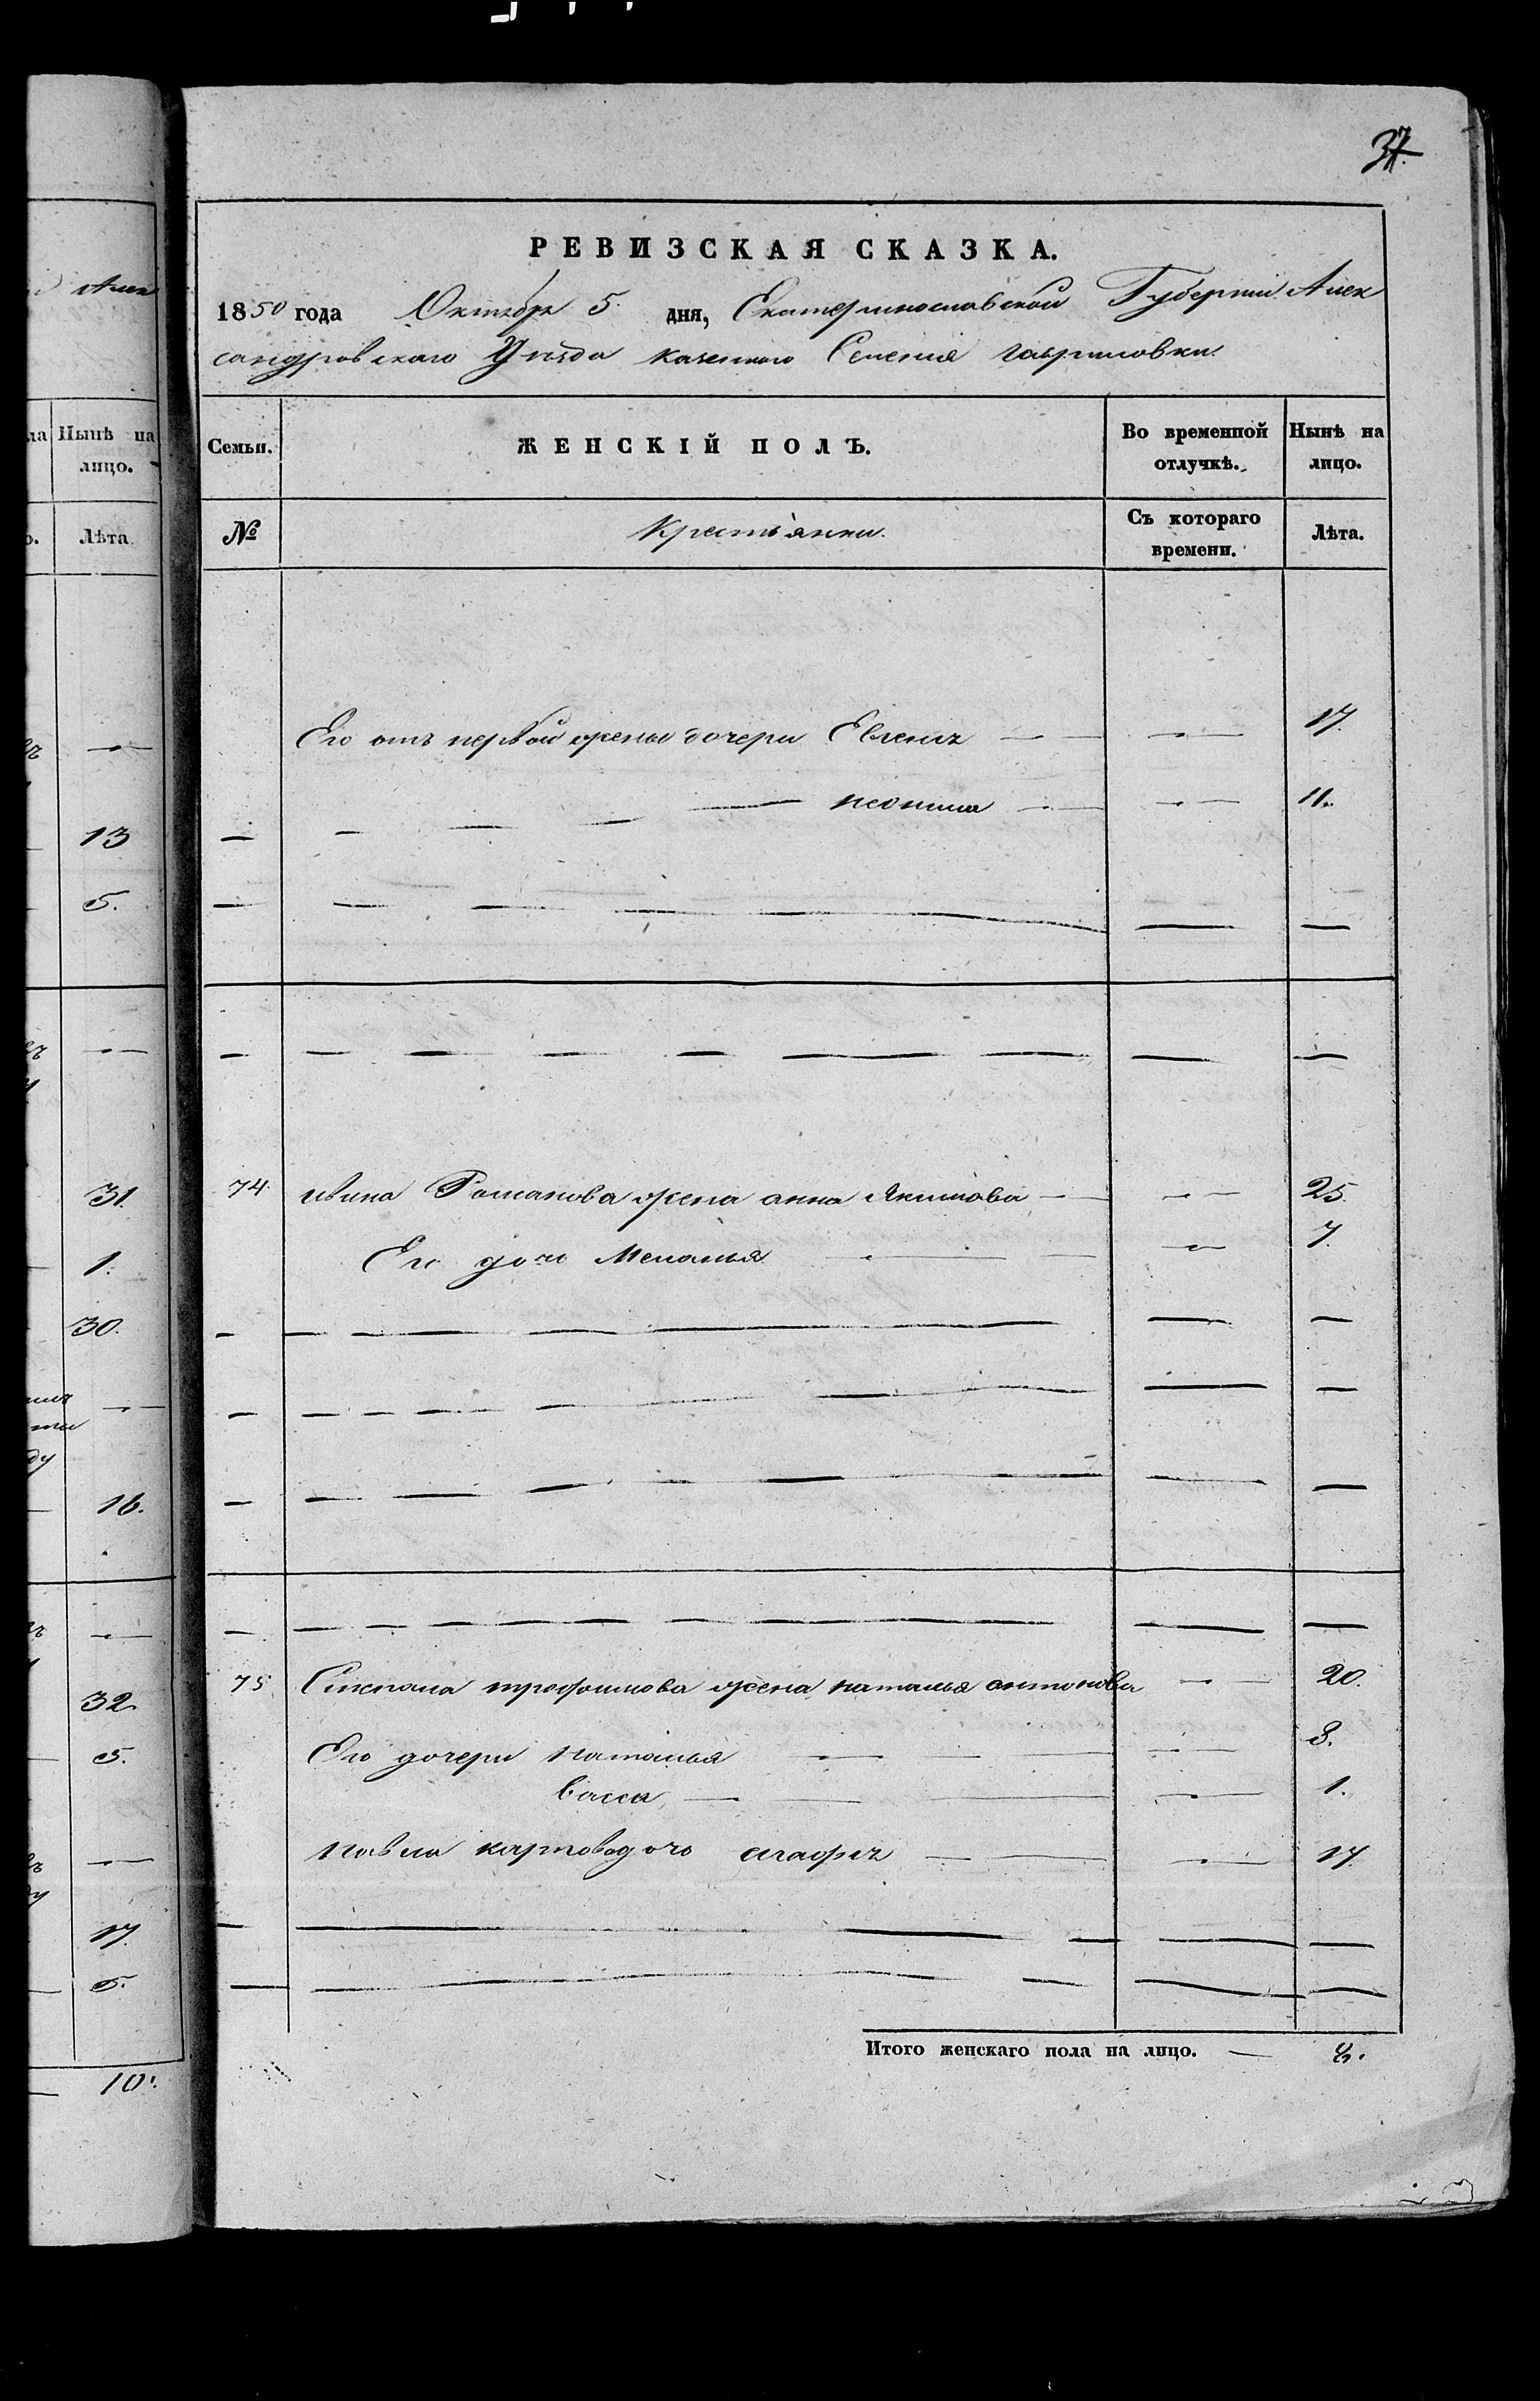 37.
РЕВИЗСКАЯ СКАЗКА.
1850 года Октября 5. дня, Екатеринославской Губерніи Алек
сандровскаго Уѣзда казеннаго Селенія гавриловки.
Алек
Нынѣ на лицо.
Лѣта
13
5.
31.
1.
30.
16.
32.
5.
17.
5.
10.
Семьи. ЖЕНСКІЙ ПОЛЪ. Во временной отлучкѣ. Нынѣ на лицо.
№ Крестьянки. Съ котораго времени. Лѣта.
Его отъ первой жены дочери Евгенія — — 17.
— — — — — 11.
74. Романова жена анна Якимова — — 25.
Его дочь Меланья — — 7.
75 Степана трофимова жена наталья антонова — 20.
Его дочери Наталья — — 3.
васса — — 1.
Павла карпова дочь агафія — — 17.
Итого женскаго пола на лицо. — 8.